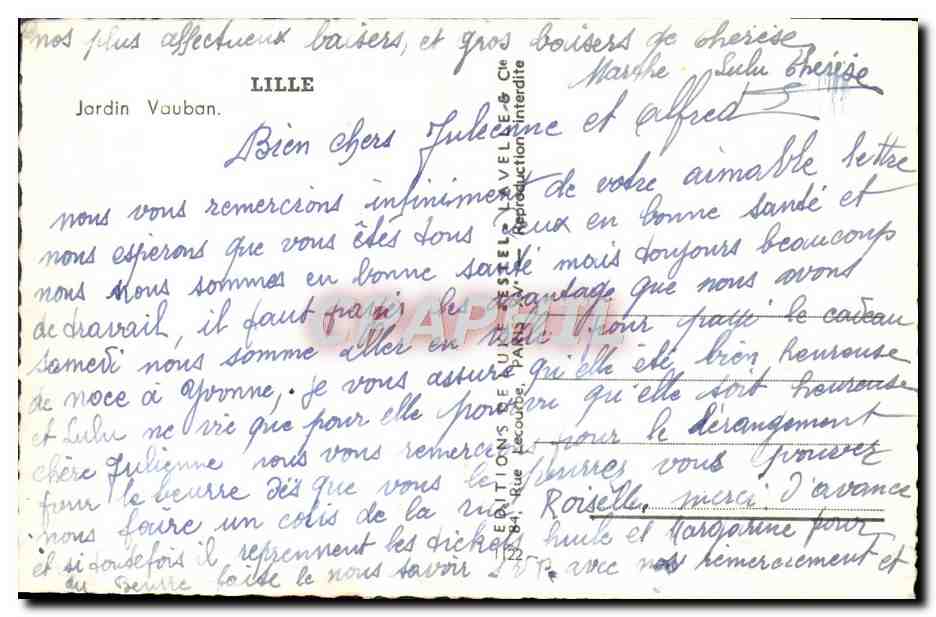 nos plus affectueux baisers, et gros baisers de therèse
Marthe Lulu thérèse
LILLE
Jardin Vauban.
Bien chers Julienne et Alfred
nous vous remercions infiniment de votre aimable lettre
nous esperons que vous êtes tous deux en bonne santé et
nous nous sommes en bonne santé mais toujours beaucoup
de travail, il faut les avantage que nous avons
samedi nous somme aller en ville pour le cadeau
de noce à Yvonne, je vous assure qu'elle été bien heureuse
et Lulu ne vie que pour elle pourvu qu'elle soit heureuse
chère Julienne nous vous remercies pour le dérangement
pour le beurre dès que vous le pourrez vous pouvez
nous faire un colis de la rue Roiselle, merci d'avance
et si toutefois il reprennent les tickets huile et Margarine pour
du Beurre faite le nous savoir S.V.P. avec nos remerciement et
EDITIONS DE LUXE ESTEL - LAVELLE & Cie
84, Rue Lecourbe, PARIS XV - Reproduction interdite
22
CPAPHIL